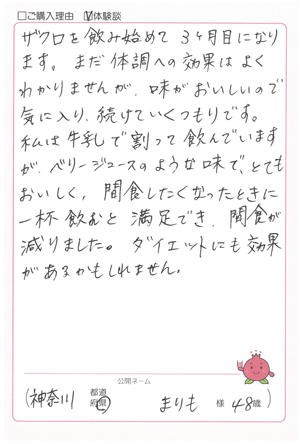 □ご購入理由 ☑体験談
ザクロを飲み始めて 3ヶ月目になり
ます。まだ体調への効果はよく
わかりませんが、味がおいしいので
気に入り、続けていくつもりです。
私は牛乳で割って飲んでいます
が、ベリージュースのような味で、とても
おいしく、間食したくなったときに
一杯飲むと満足でき、間食が
減りました。ダイエットにも効果
があるかもしれません。
公開ネーム
(神奈川 都道府県 まりも 様 48歳)